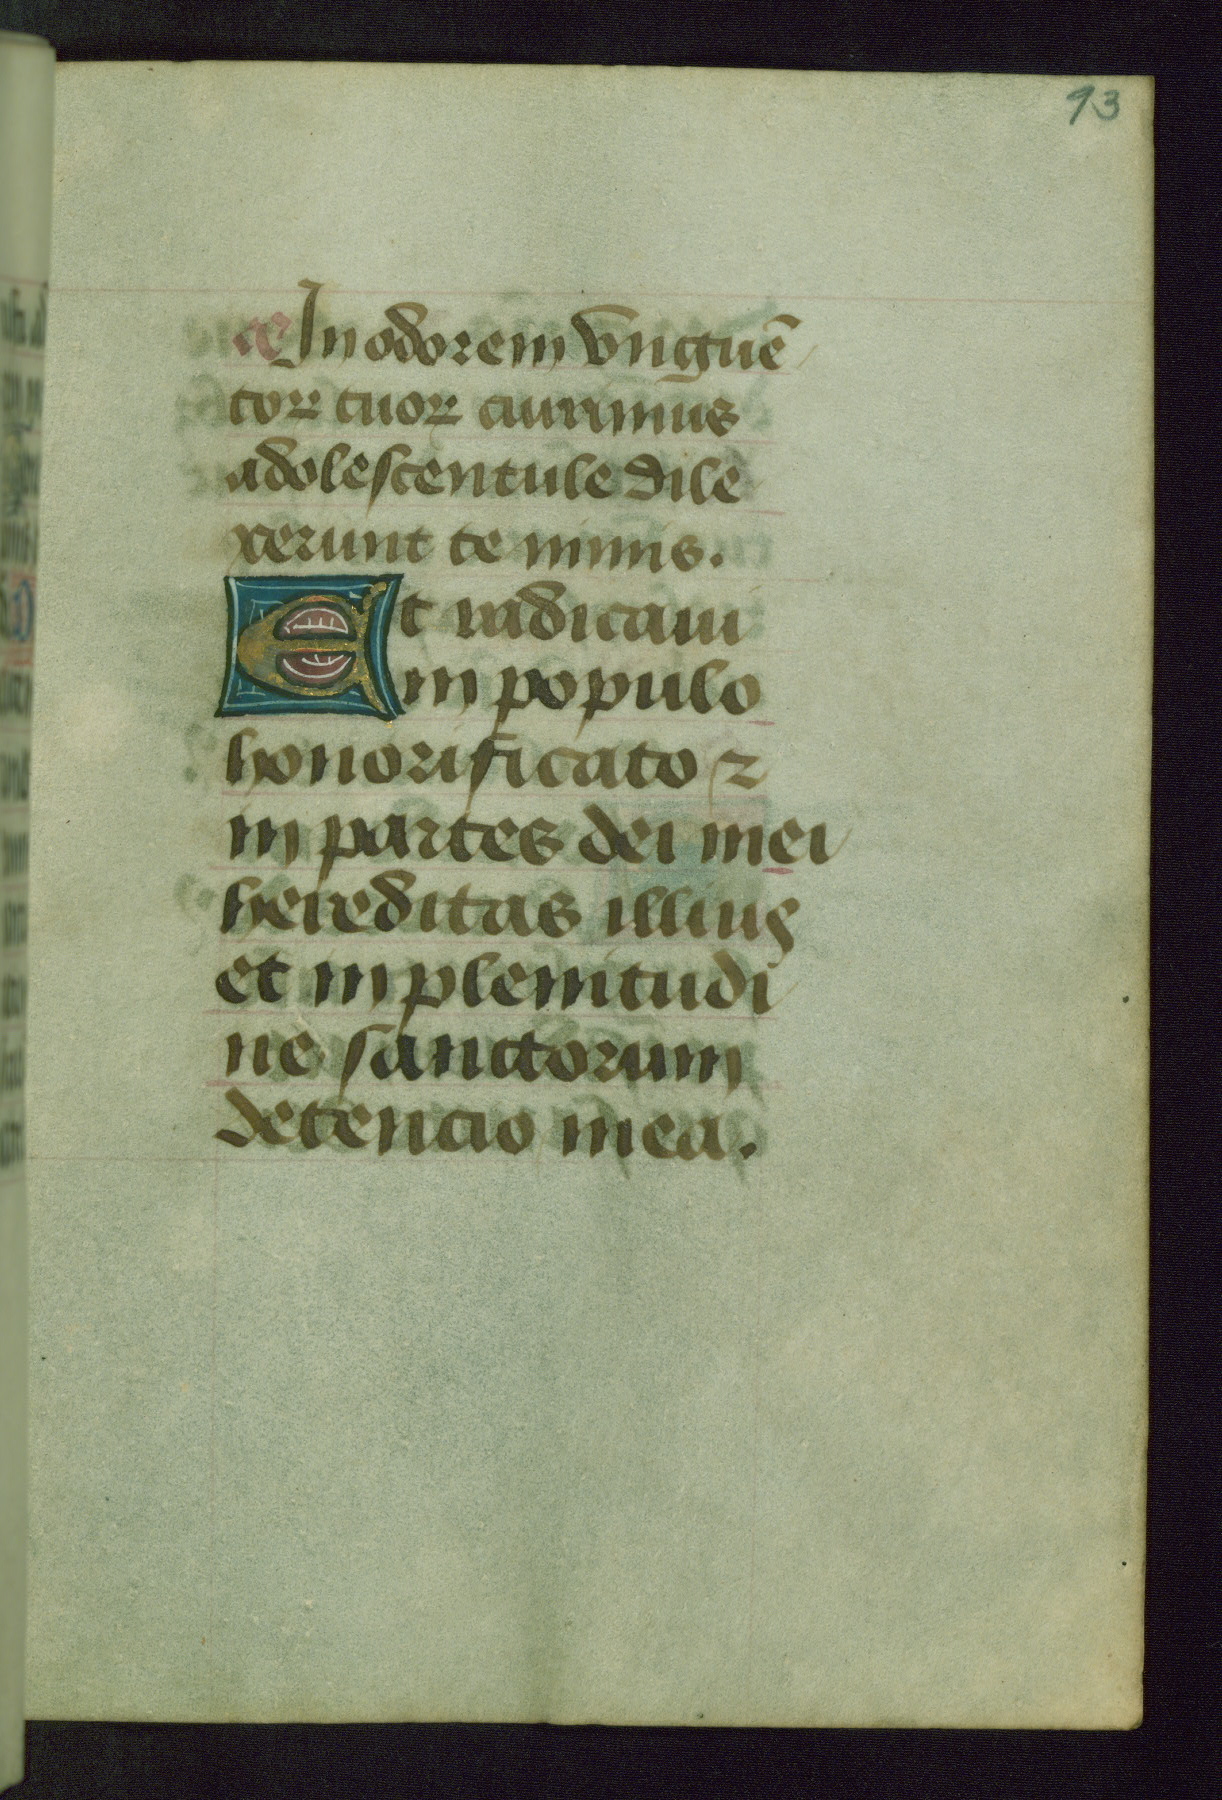 93
a͞e In odorem vnguē
toꝝ tuoꝝ currimus
adolescentule dile
xerunt te nimis.
Et radicaui
in populo
honorificato ⁊
in partes dei mei
hereditas illius
et in plenitudi
ne sanctorum
detencio mea.